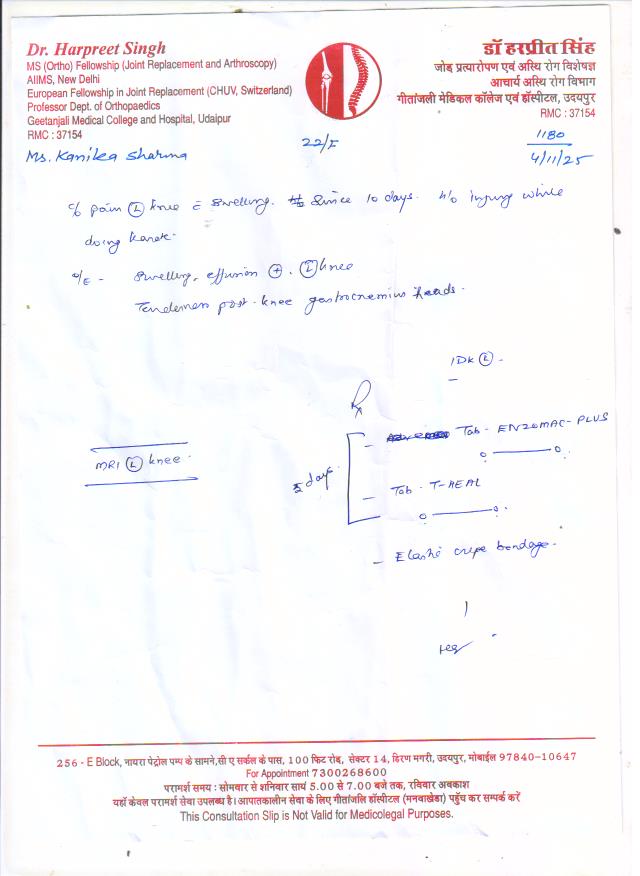 Dr. Harpreet Singh
MS (Ortho) Fellowship (Joint Replacement and Arthroscopy)
AIIMS, New Delhi
European Fellowship in Joint Replacement (CHUV, Switzerland)
Professor Dept. of Orthopaedics
Geetanjali Medical College and Hospital, Udaipur
RMC : 37154
डॉ हरप्रीत सिंह
जोड़ प्रत्यारोपण एवं अस्थि रोग विशेषज्ञ
आचार्य अस्थि रोग विभाग
गीतांजली मेडिकल कॉलेज एवं हॉस्पीटल, उदयपुर
RMC : 37154
Ms. Kanika Sharma
22/F
1180
4/11/25
c/o pain Ⓛ knee c̄ swelling. Since 10 days. H/o injury while
doing karate.
o/E - Swelling, effusion ⊕. Ⓛ knee
Tenderness post. knee gastrocnemius heads.
IDK Ⓛ -
Rx
- Tab - ENZOMAC-PLUS
o ——— o
MRI Ⓛ knee
5 days
- Tab - T-HEAL
o ——— o
- Elastic crepe bandage.
256 - E Block, नायरा पेट्रोल पम्प के सामने, सी ए सर्कल के पास, 100 फिट रोड, सेक्टर 14, हिरण मगरी, उदयपुर, मोबाईल 97840-10647
For Appointment 7300268600
परामर्श समय : सोमवार से शनिवार सायं 5.00 से 7.00 बजे तक, रविवार अवकाश
यहाँ केवल परामर्श सेवा उपलब्ध है। आपातकालीन सेवा के लिए गीतांजलि हॉस्पीटल (मनवाखेडा) पहुँच कर सम्पर्क करें
This Consultation Slip is Not Valid for Medicolegal Purposes.